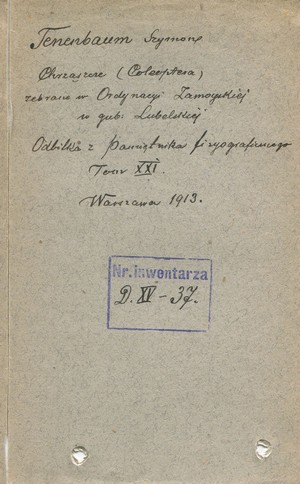 Tenenbaum Szymon
Chrząszcze (Coleoptera)
zebrane w Ordynacyi Zamoyskiej
w gub. Lubelskiej
Odbitka z Pamiętnika fizyograficznego
Tom XXI.
Warszawa 1913.
Nr. inwentarza
D. XV - 37.